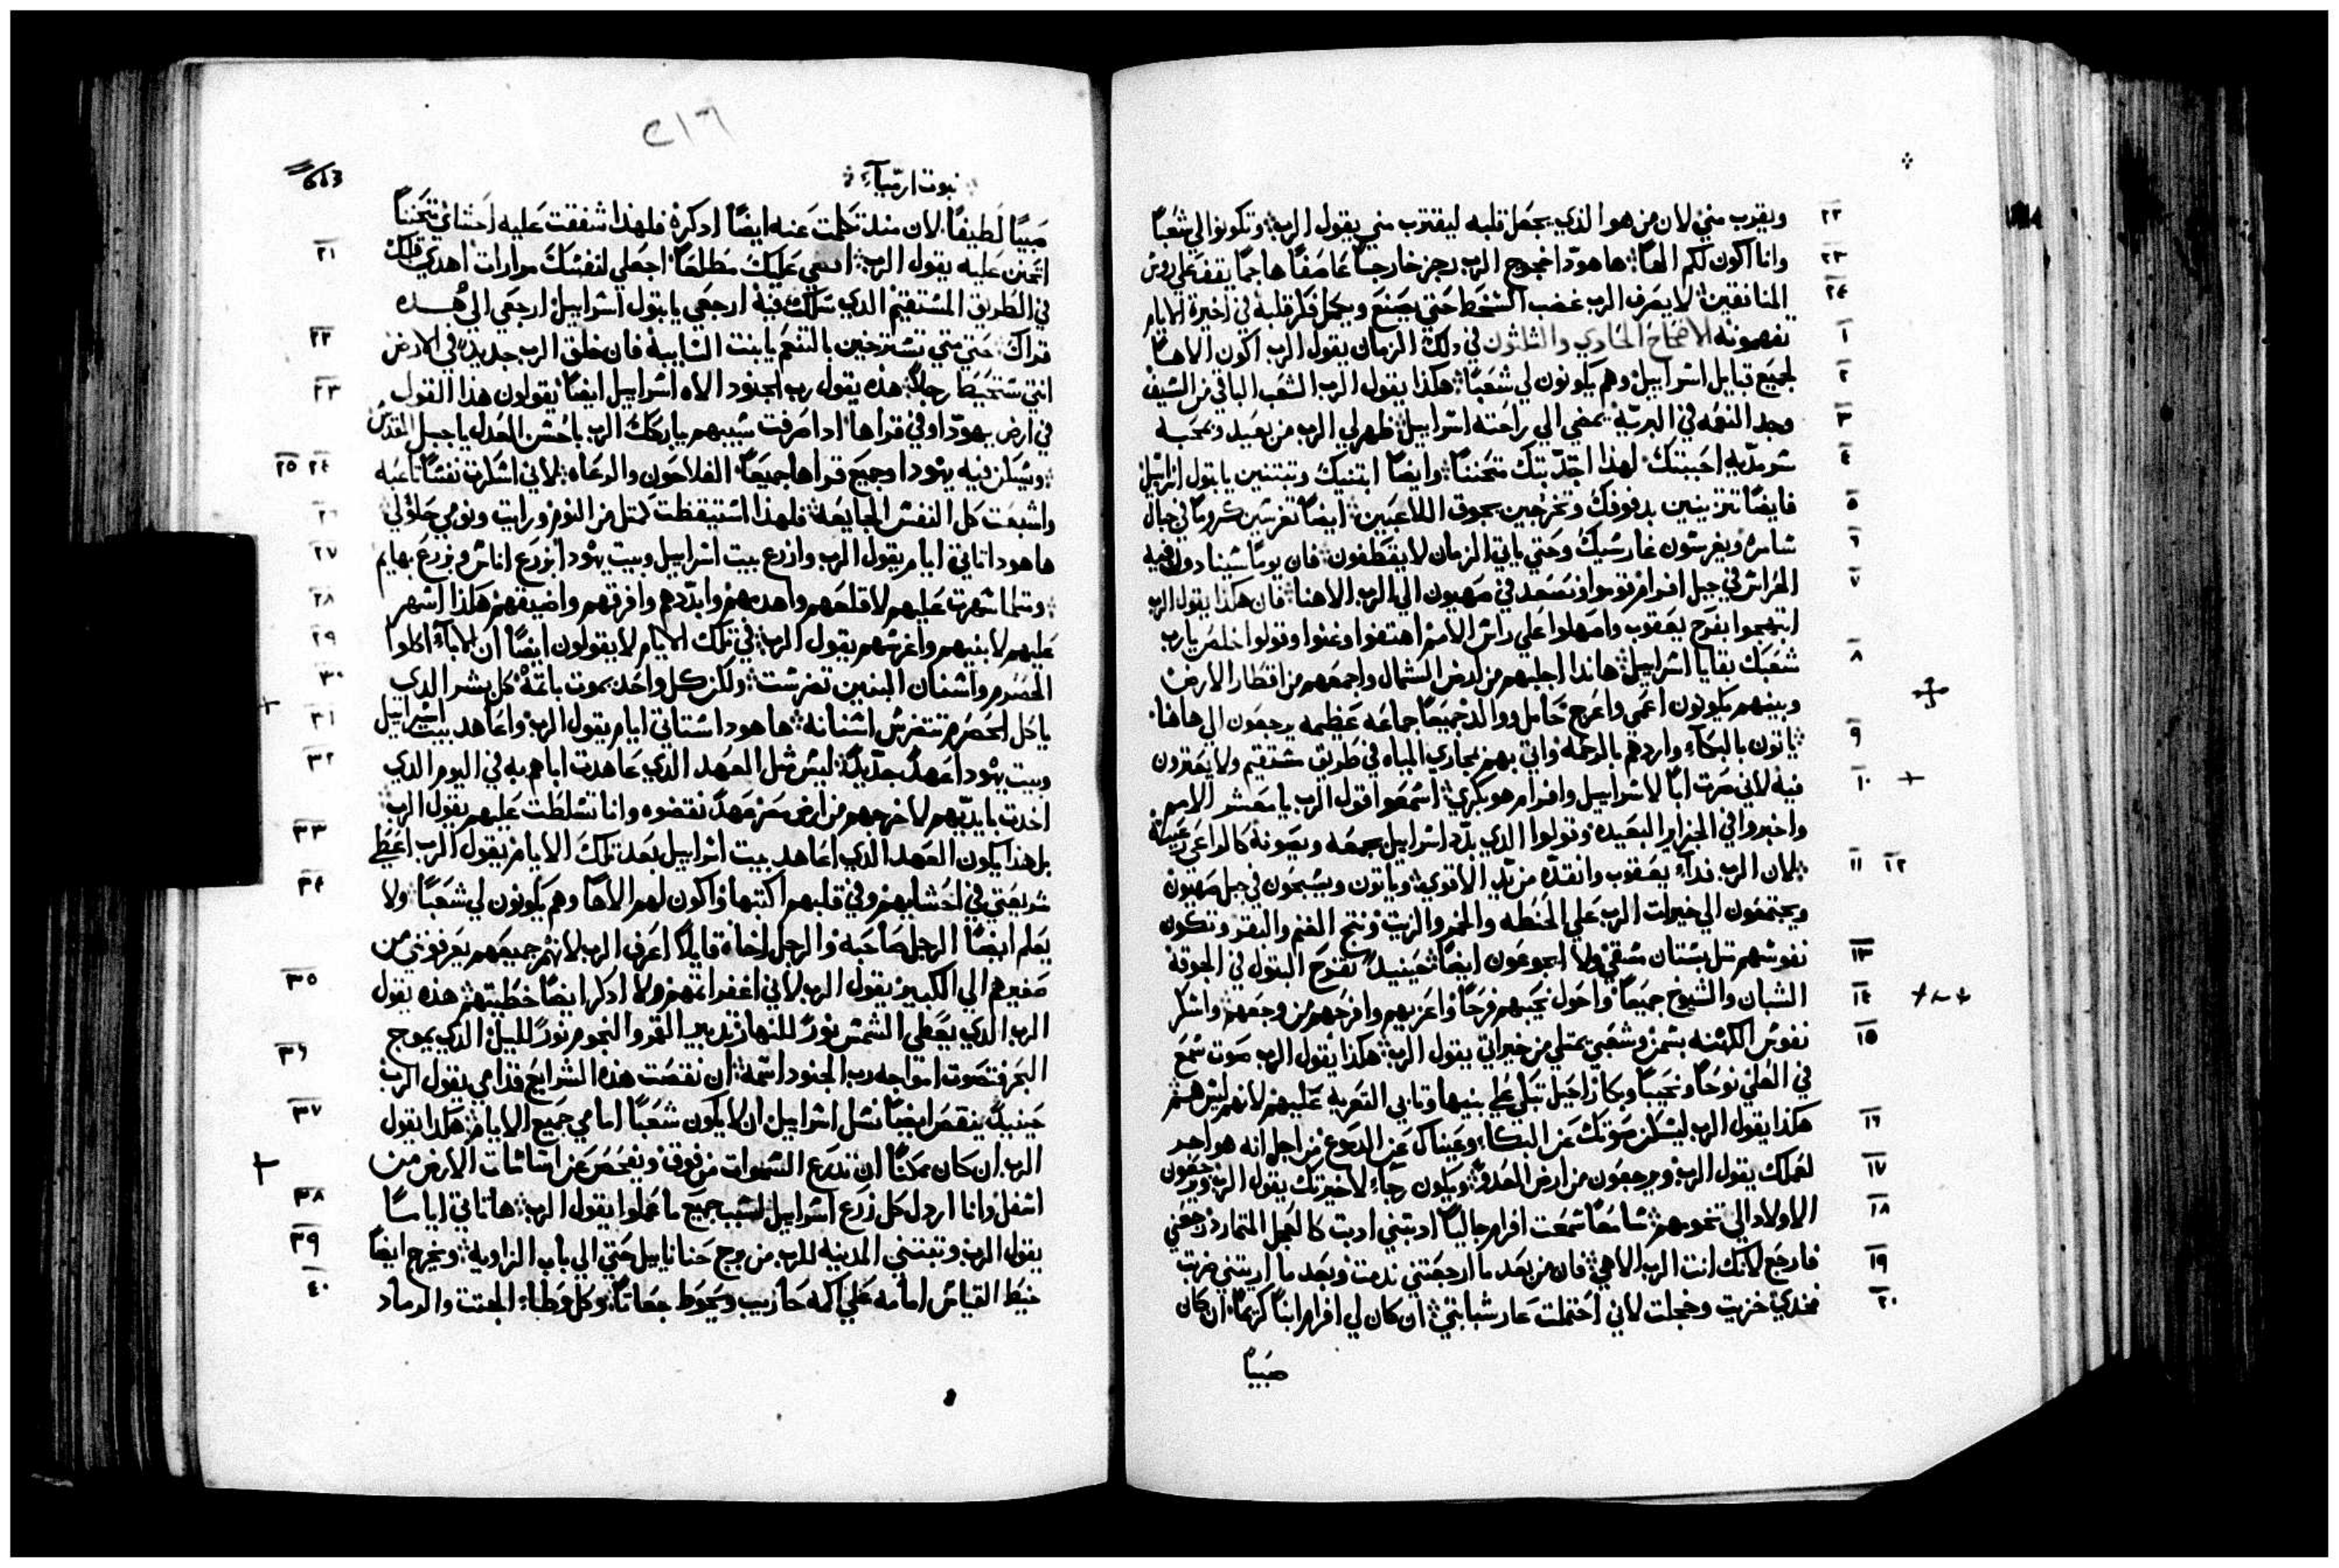 ويقرب مني لان من هو الذي يجعل قلبه ليقترب مني يقول الرب وتكونوا لي شعبًا
٢٢
وانا اكون لكم الهًا ها هودا خروج الرب رجز خارجًا عاصفًا هاجمًا يقف علي روس
٢٣
المنافقين لا يصرف الرب غضب السخط حتي يصنع ويكمل فكر قلبه في اخيرة الايام
٢٤
تفهمونه الاصحاح الحادي والثلثون في دلك الزمان يقول الرب اكون الاهًا
١
لجميع قبايل اسراييل وهم يكونون لي شعبًا هكذا يقول الرب الشعب الباقي من السيف
٢
وجد النعمه في البريّة يمضي الي راحته اسراييل ظهر لي الرب من بعيد وبمحبه
٣
سرمديه احببتك لهذا اجتدبتك متحننًا وايضًا ابتنيك وتبتنين يا بتول اسراييل
٤
فايضًا تتزينين بدفوفك وتخرجين بجوق اللاعبين ايضًا تغرسين كرومًا في جبال
٥
شامره ويغرسون غارسيك وحتي ياتي الزمان لا يقطفون فان يومًا سينادون فيه
٦
الحراس في جبل افرام قوموا ونصعد في صهيون الي الرب الاهنا فان هكذا يقول الرب
٧
ابتهجوا بفرح يعقوب واصهلوا علي راس الامم اهتفوا وغنوا وقولوا خلص يا رب
شعبك بقايا اسراييل هاندا اجلبهم من ارض الشمال واجمعهم من اقطار الارض
٨
وبينهم يكونون اعمي واعرج حامل ووالد جميعًا جماعه عظيمه يرجعون الي هاهنا
ياتون بالبكاء واردهم بالرحمه واتي بهم بمجاري المياه في طريق مستقيم ولا يعترون
٩
فيه لاني صرت ابًا لاسراييل وافرام هو بكري اسمعوا قول الرب يا معشر الامم
١٠
واخبروا في الجزاير البعيده وقولوا الذي بدّد اسراييل يجمعه ويصونه كالراعي رعيته
لان الرب فداء يعقوب وانقده من يد الاقوي وياتون ويسبحون في جبل صهيون
١١ ١٢
ويجتمعون الي خيرات الرب علي الحنطه والخمر والزيت ونتج الغنم والبقر وتكون
نفوسهم مثل بستان سقي ولا يجوعون ايضًا حينيد تفرح البتول في الجوقة
١٣
الشبان والشيوخ جميعًا واحول نحيبهم فرحًا واعزيهم وافرحهم من وجعهم واسكر
١٤
نفوس الكهنه بسمن وشعبي يمتلي من خيراتي يقول الرب هكذا يقول الرب صوت سمع
١٥
في العلي نوحًا ونحيبًا وبكا راحيل تبكي علي بنيها وتابي التعزيه عليهم لانهم ليس هم
هكذا يقول الرب ليسكن صوتك عن البكاء وعيناك عن الدموع من اجل انه هو اجر
١٦
لعملك يقول الرب ويرجعون من ارض العدو ويكون رجاء لاخيرتك يقول الرب ويرجعون
١٧
الاولاد الي تخومهم سامعًا سمعت افرام جاليًا ادبتني ادبت كالعجل المتمارد رجعني
١٨
فارجع لانك انت الرب الاهي فان من بعد ما ارجعتني ندمت وبعد ما اريتني ضربت
١٩
فخدي خزيت وخجلت لاني احتملت عار شبابتي ان كان لي افرام ابنًا كريمًا ان كان
٢٠
صبيًا
٢١٦
نبوت ارميآء
صبيًا لطيفًا لان منذ تكلمت عنه ايضًا ادكره فلهذا شفقت عليه احشائي تحننًا
اتحنن عليه يقول الرب اقيمي عليك مطلعًا اجعلي لنفسك مرارات اهدي قلبك
٢١
في الطريق المستقيم الدي سلكت فيه ارجعي يا بتول اسراييل ارجعي الي هذه
قراك حتي متي تسترخين بالتنعم يا بنت السايبة فان خلق الرب جديدًا في الارض
٢٢
انتي ستحيط رجلاً هذه يقول رب الجنود الاه اسراييل ايضًا يقولون هذا القول
٢٣
في ارض يهودا وفي قراها ادا صرفت سبيهم يباركك الرب يا حسن العدل يا جبل المقدس
ويسكن فيه يهودا وجميع قراها جميعًا الفلاحون والرعاه لاني اسكرت نفسًا تاعبه
٢٤ ٢٥
واشبعت كل النفس الجايعه فلهذا استيقظت كمثل من النوم ورايت ونومي حلو لي
٢٦
ها هودا تاتي ايام يقول الرب وازرع بيت اسراييل وبيت يهودا بزرع اناس وزرع بهايم
٢٧
ومثلما سهرت عليهم لاقلعهم واهدمهم وابدّدهم وافرقهم واضيقهم هكذا اسهر
٢٨
عليهم لابنيهم واغرسهم يقول الرب في تلك الايام لا يقولون ايضًا ان الاباء اكلوا
٢٩
الحصرم واسنان البنين تضرست ولكن كل واحد يموت باتمه كل بشر الدي
٣٠
ياكل الحصرم تتضرس اسنانه ها هودا ستاتي ايام يقول الرب واعاهد بيت اسراييل
٣١
وبيت يهودا عهدًا جديدًا ليس مثل العهد الدي عاهدت اباهم به في اليوم الدي
٣٢
اخدت بايديهم لاخرجهم من ارض مصر عهدًا نقضوه وانا تسلطت عليهم يقول الرب
بل هذا يكون العهد الدي اعاهد بيت اسراييل بعد تلك الايام يقول الرب اعطي
٣٣
شريعتي في احشايهم وفي قلبهم اكتبها واكون لهم الاهًا وهم يكونون لي شعبًا ولا
٣٤
يعلم ايضًا الرجل صاحبه والرجل اخاه قايلاً اعرف الرب لانهم جميعهم يعرفونني من
صغيرهم الي الكبير يقول الرب لاني اغفر اتمهم ولا ادكر ايضًا خطيتهم هذه يقول
٣٥
الرب الدي يعطي الشمس نورًا للنهار تدبير القمر والنجوم نورًا لليل الدي يموج
البحر فتصوت امواجه رب الجنود اسمه ان نقصت هذه الشرايع قدامي يقول الرب
٣٦
حينيد ينقص ايضًا نسل اسراييل ان لا يكون شعبًا امامي جميع الايام هكدا يقول
٣٧
الرب ان كان ممكنًا ان تدرع السموات من فوق ويفحص عن اساسات الارض من
اسفل وانا اردل كل زرع اسراييل لسبب جميع ما عملوا يقول الرب ها تاتي ايامًا
٣٨
يقول الرب وتبتني المدينه للرب من برج حناناييل حتي الي باب الزاوية ويخرج ايضًا
٣٩
خيط القياس امامه علي اكمه حاريب ويحوط جعاتًا وكل وطاء الجتت والرماد
٤٠